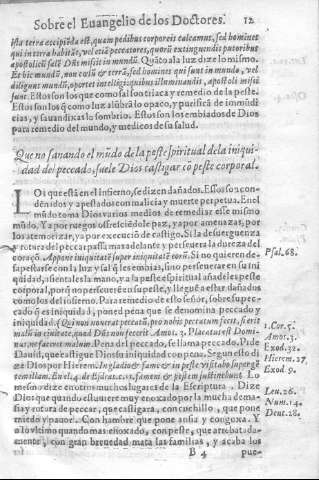 Sobre el Euangelio de los Doctores. 12
ista terra accipiẽda est, quam pedibus corporeis calcamus, sed homines
qui in terra habitãt, vel etiã peccatores, quorũ extinguendis putoribus
apostolicũ salẽ Dñs misit in mundũ. Quãto a la luz dize lo mismo.
Et hic mundũ, non cœlũ & terrã, sed homines qui sunt in mundo, vel
diligunt mundũ, oportet intelligi: quibus illuminandis, apostoli missi
sunt. Estos son los que como sal son triaca y remedio de la peste.
Estos son los q̃ como luz alũbra lo opaco, y purifica de immũdi
cias, y saua toxica lo sombrio. Estos son los embiados de Dios
para remedio del mundo, y medicos de su salud.
Que no sanando el mũdo de la peste spiritual de la iniqui-
dad del peccado, suele Dios castigar cõ peste corporal.
LOs que está en el infierno, se dizen dañados. Estos son con-
dẽnidos y apestados con malicia y muerte perpetua. En el
mũdo toma Dios varios medios de remediar esse mismo
mũdo. Ya por ruegos ofreciẽdole paz, ya por amenazas, por
los atemorizar, ya por execuciõ de castigo. Si la desuerguença
y rotura del peccar passa mas adelante y perseuera la dureza del
coraçõ. Appone iniquitatẽ super iniquitatẽ eorũ. Si no quieren de-
sapestarse con la luz y sal q̃ les embias, sino perseuerar en su ini
quidad, assientales la mano, y a la peste spiritual añadeles peste
corporal, porq̃ no perseuerẽ en su peste, y lleguẽ a estar dañados
como los del infierno. Para remedio de esto señor, sobre su pec-
cado q̃ es iniquidad, poned pena que se denomina peccado y
iniquidad.
Pena del peccado, se llama peccado. Pide
Dauid, que castigue Dios su iniquidad con pena. Segun esto di
ze Dios por Hierem. In gladio & fame & in peste visitabo super gẽ
tem illam. Lo
mesmo dize en otros muchos lugares de la Escriptura. Dize
Dios que quando estuuiere muy enoxado por la mucha dema-
sia y rotura de peccar, que castigara, con cuchillo, que pone
miedo y pauor. Con hambre que pone ansia y congoxa. Y
a lo vltimo quando mas enoxado, con peste, que arrebatada-
mente, con gran breuedad mata las familias, y acaba los
B 4 pue-
Psal. 68.
1. Cor. 5.
Amos. 3.
Exod. 32.
Hierem. 27.
Exod. 9.
Leu. 26.
Num. 14.
Deut. 28.